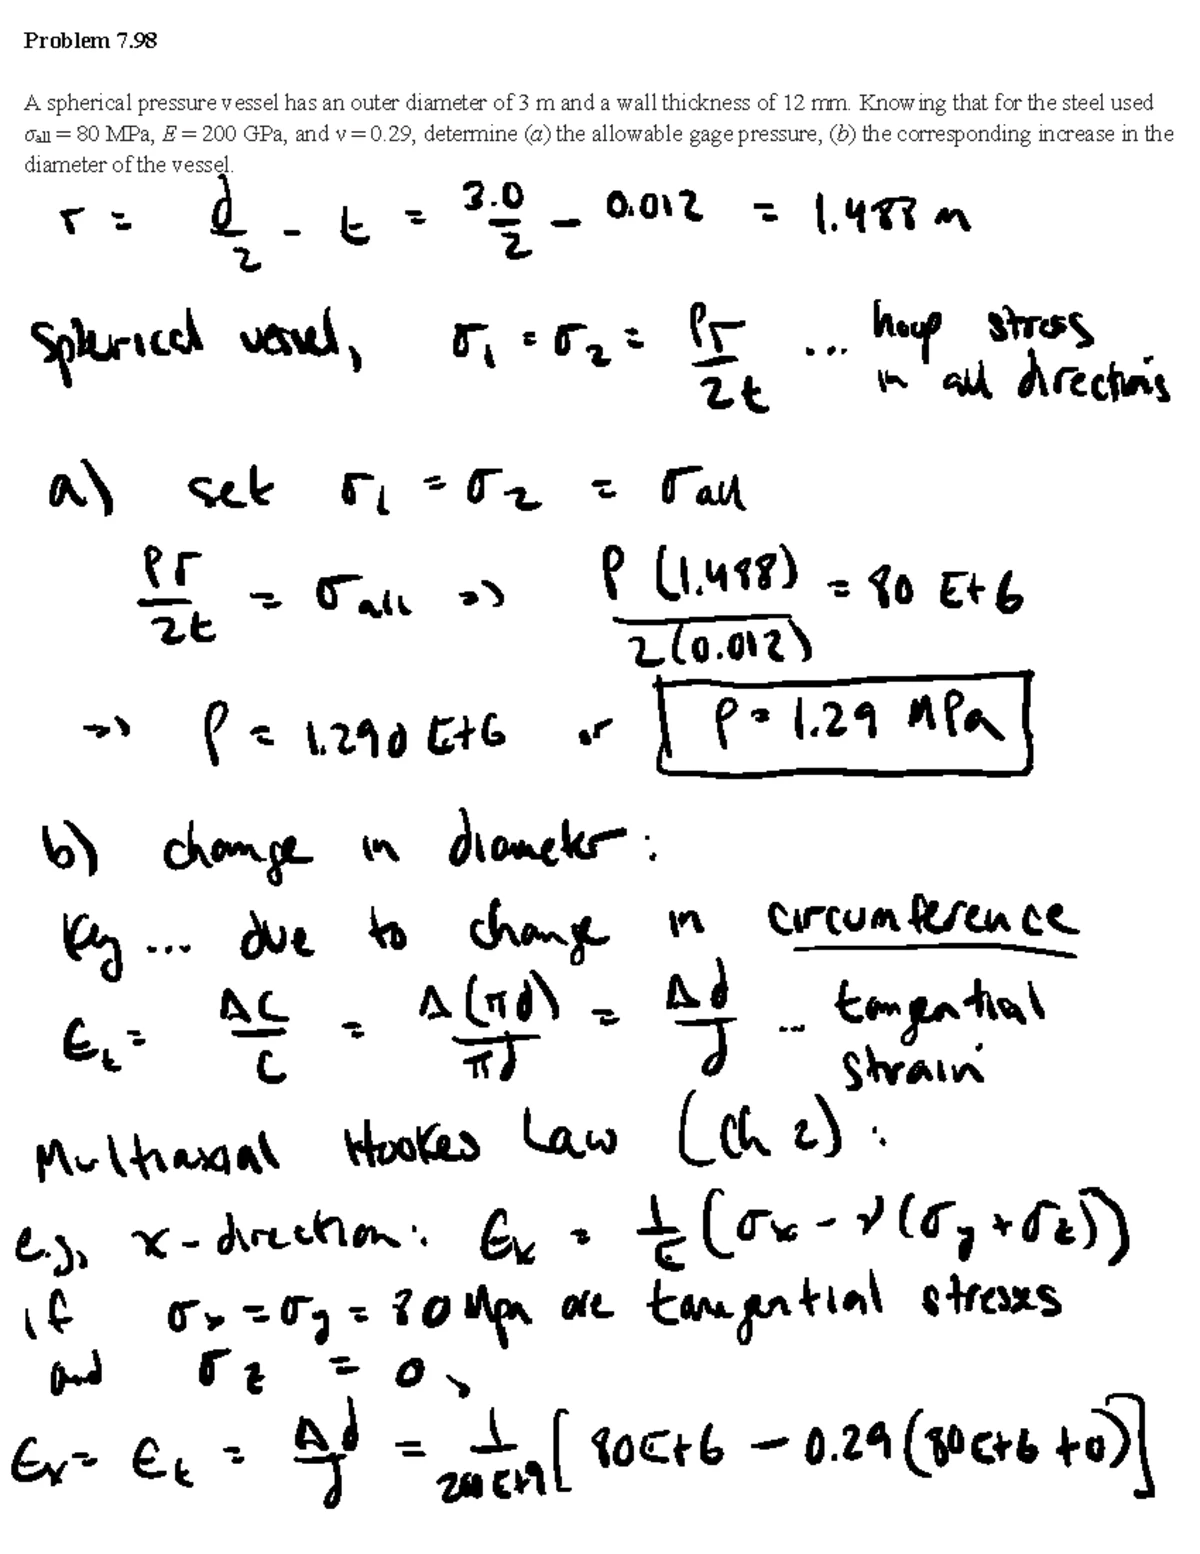 Problem 7.98
A spherical pressure vessel has an outer diameter of 3 m and a wall thickness of 12 mm. Knowing that for the steel used
σall = 80 MPa, E = 200 GPa, and ν = 0.29, determine (a) the allowable gage pressure, (b) the corresponding increase in the
diameter of the vessel.
r = d/2 - t = 3.0/2 - 0.012 = 1.488 m
Spherical vessel, σ1 = σ2 = Pr/2t ... hoop stress
in all directions
a) set σ1 = σ2 = σall
Pr/2t = σall => P(1.488)/2(0.012) = 80 E+6
=> P = 1.290 E+6 or P = 1.29 MPa
b) change in diameter:
Key ... due to change in circumference
Єt = ΔC/C = Δ(πd)/πd = Δd/d ... tangential
strain
Multiaxial Hookes Law (Ch 2):
e.g., x-direction: Єx = 1/E (σx - ν(σy + σz))
if σx = σy = 80 Mpa are tangential stresses
and σz = 0,
Єx = Єt = Δd/d = 1/200E+9 [80E+6 - 0.29(80E+6 + 0)]